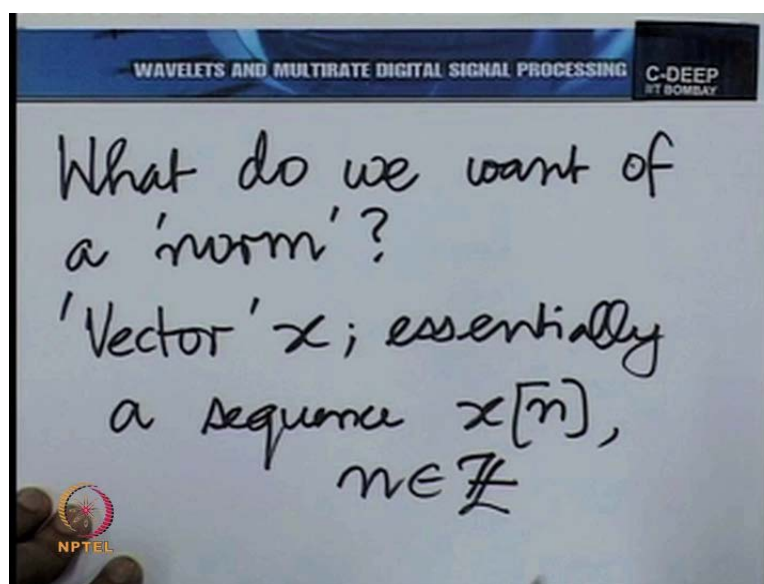 WAVELETS AND MULTIRATE DIGITAL SIGNAL PROCESSING
C-DEEP
IIT BOMBAY
What do we want of
a 'norm'?
'Vector' x; essentially
a sequence x[n],
n∈ℤ
NPTEL